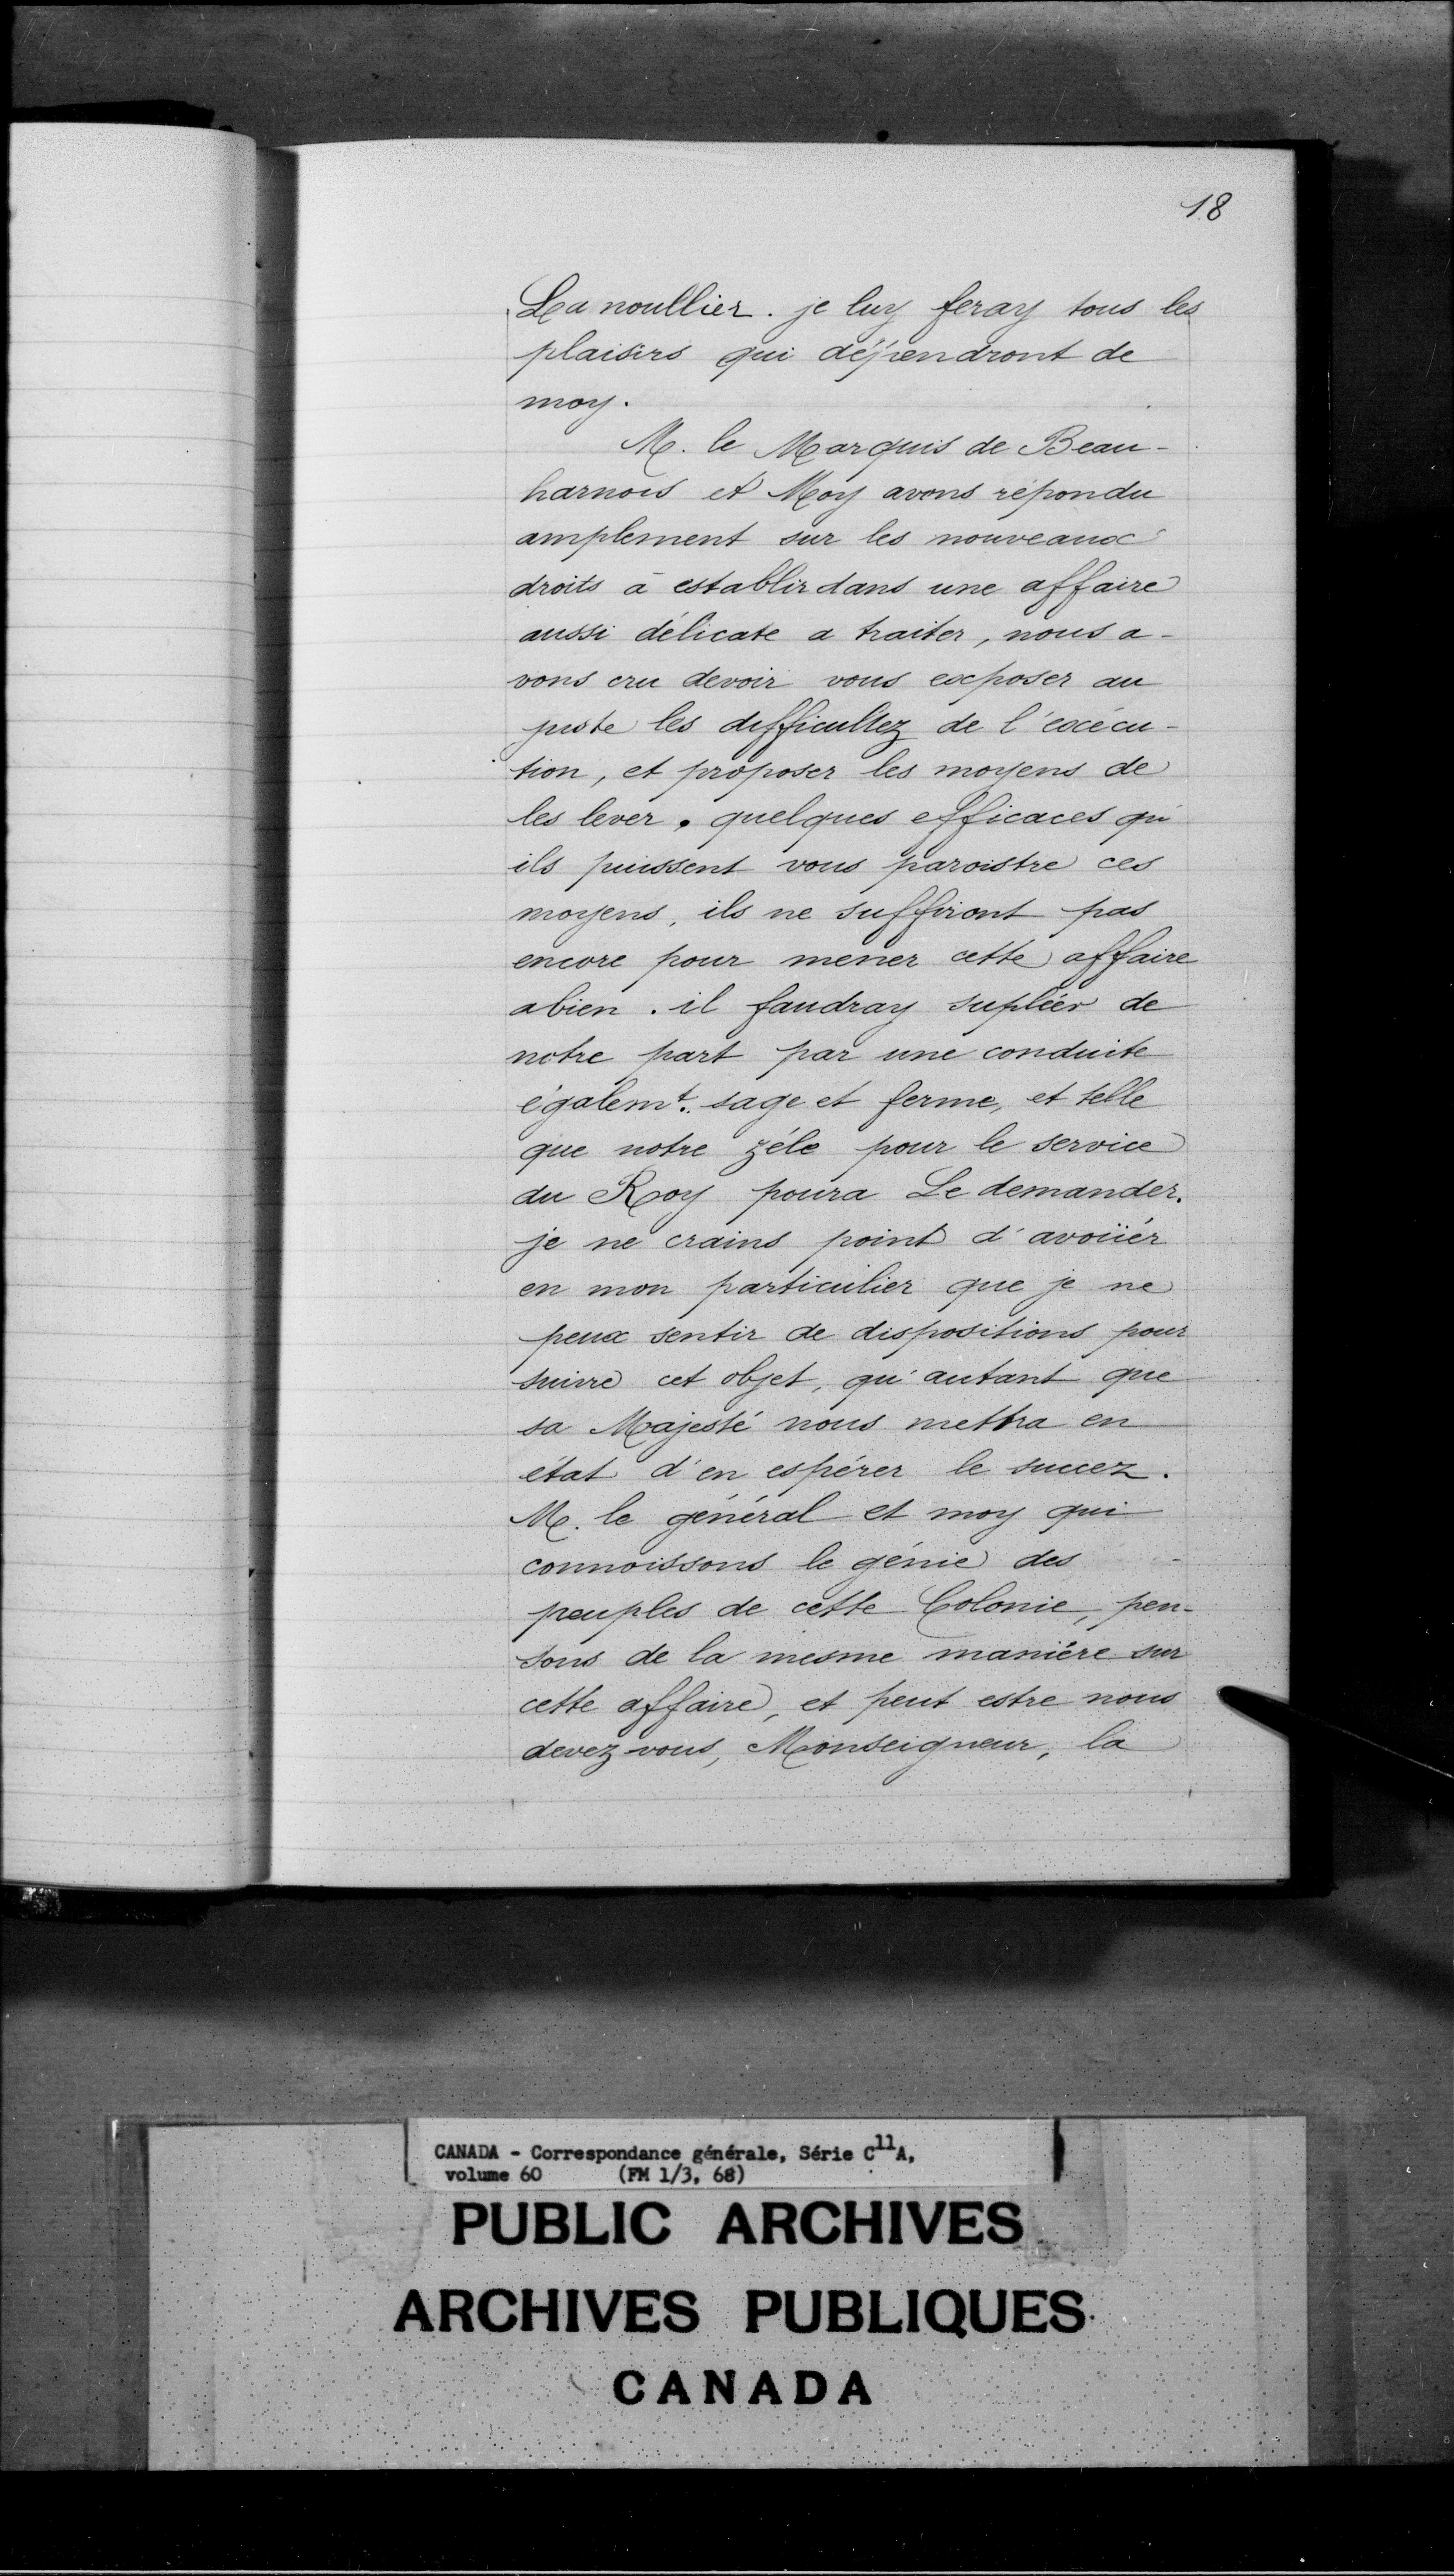 18
Lanoullier. je luy feray tous les
plaisirs qui dépendront de
moy.
M. le Marquis de Beau-
harnois et Moy avons répondu
amplement sur les nouveaux
droits à establir dans une affaire
aussi délicate a traiter, nous a-
vons cru devoir vous exposer au
juste les difficultez de l'exécu-
tion, et proposer les moyens de
les lever. quelques efficaces qu'
ils puissent vous paroistre ces
moyens, ils ne suffiront pas
encore pour mener cette affaire
abien. il faudray supléer de
notre part par une conduite
égalemt. sage et ferme, et telle
que notre zéle pour le service
du Roy poura Le demander.
je ne crains point d'avoüér
en mon particulier que je ne
peux sentir de dispositions pour
suivre cet objet, qu'autant que
sa Majesté nous mettra en
état d'en espérer le succez.
M. le général et moy qui
connoissons le génie des
peuples de cette Colonie, pen-
sons de la mesme maniére sur
cette affaire, et peut estre nous
devez-vous, Monseigneur, la
CANADA - Correspondance générale, Série C11A,
volume 60 (FM 1/3, 68)
PUBLIC ARCHIVES
ARCHIVES PUBLIQUES
CANADA